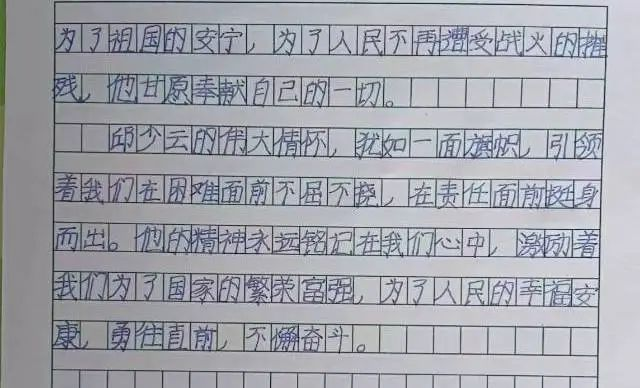 为了祖国的安宁，为了人民不再遭受战火的摧
残，他甘原奉献自己的一切。
邱少云的伟大情怀，犹如一面旗帜，引领
着我们在困难面前不屈不挠，在责任面前挺身
而出。他的精神永远铭记在我们心中，激励着
我们为了国家的繁荣富强，为了人民的幸福安
康，勇往直前，不懈奋斗。